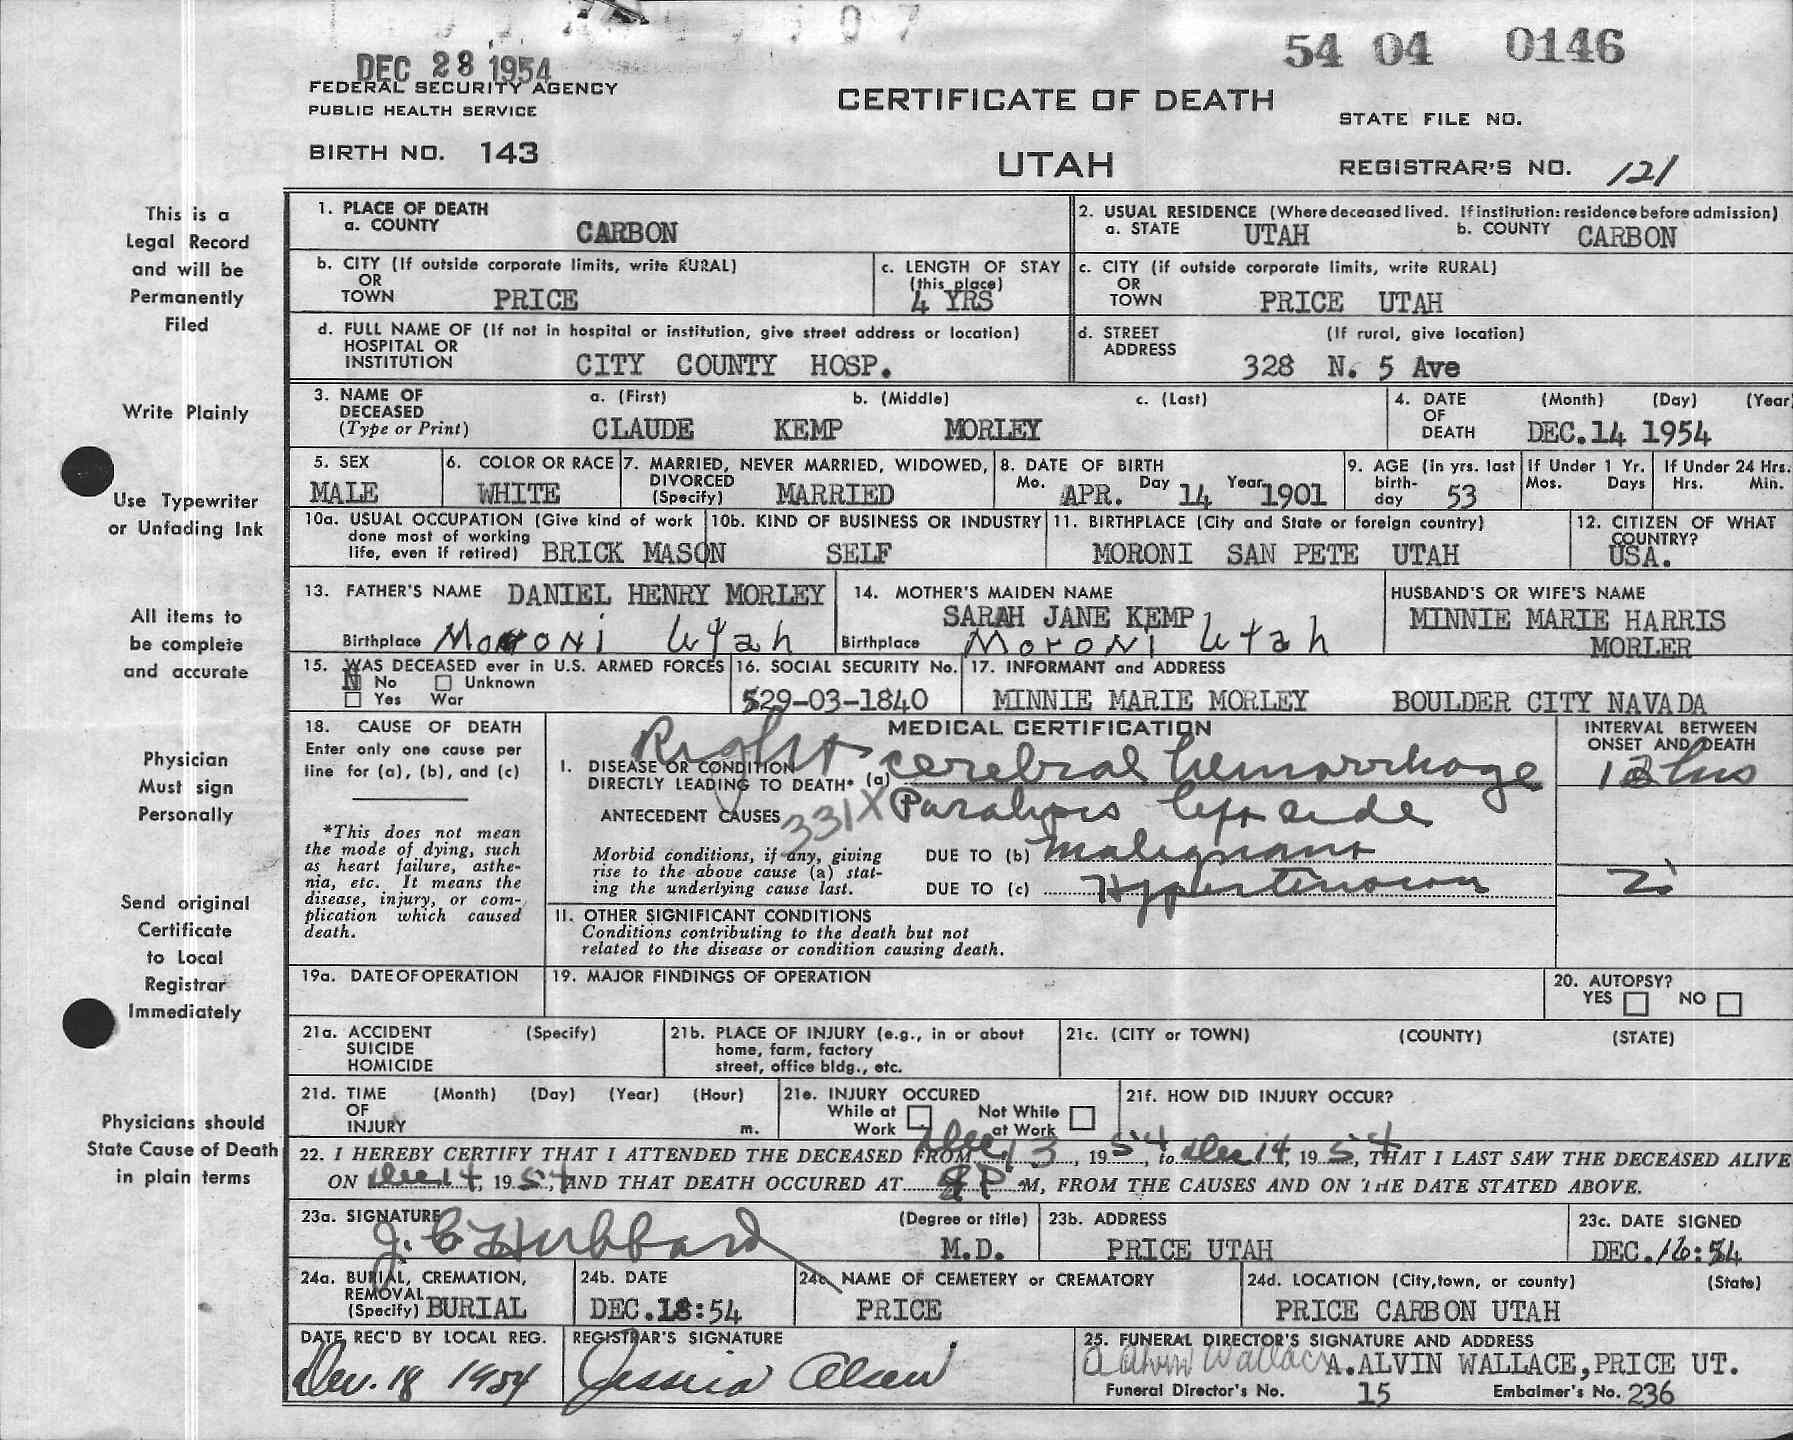 DEC 28 1954
54 04 0146
FEDERAL SECURITY AGENCY
PUBLIC HEALTH SERVICE
CERTIFICATE OF DEATH
STATE FILE NO.
BIRTH NO. 143
UTAH
REGISTRAR'S NO. 121
This is a
Legal Record
and will be
Permanently
Filed
Write Plainly
Use Typewriter
or Unfading Ink
All items to
be complete
and accurate
Physician
Must sign
Personally
Send original
Certificate
to Local
Registrar
Immediately
Physicians should
State Cause of Death
in plain terms
1. PLACE OF DEATH
a. COUNTY CARBON
2. USUAL RESIDENCE (Where deceased lived. If institution: residence before admission)
a. STATE UTAH b. COUNTY CARBON
b. CITY (If outside corporate limits, write RURAL)
OR
TOWN PRICE
c. LENGTH OF STAY
(this place)
4 YRS
c. CITY (if outside corporate limits, write RURAL)
OR
TOWN PRICE UTAH
d. FULL NAME OF (If not in hospital or institution, give street address or location)
HOSPITAL OR
INSTITUTION CITY COUNTY HOSP.
d. STREET (If rural, give location)
ADDRESS 328 N. 5 Ave
3. NAME OF DECEASED (Type or Print)
a. (First) b. (Middle) c. (Last)
CLAUDE KEMP MORLEY
4. DATE OF DEATH (Month) (Day) (Year)
DEC. 14 1954
5. SEX
MALE
6. COLOR OR RACE
WHITE
7. MARRIED, NEVER MARRIED, WIDOWED,
DIVORCED
(Specify) MARRIED
8. DATE OF BIRTH
Mo. APR. Day 14 Year 1901
9. AGE (in yrs. last
birth-
day 53
If Under 1 Yr.
Mos. Days
If Under 24 Hrs.
Hrs. Min.
10a. USUAL OCCUPATION (Give kind of work
done most of working
life, even if retired) BRICK MASON
10b. KIND OF BUSINESS OR INDUSTRY
SELF
11. BIRTHPLACE (City and State or foreign country)
MORONI SAN PETE UTAH
12. CITIZEN OF WHAT
COUNTRY?
USA.
13. FATHER'S NAME DANIEL HENRY MORLEY
Birthplace Moroni Utah
14. MOTHER'S MAIDEN NAME
SARAH JANE KEMP
Birthplace Moroni Utah
HUSBAND'S OR WIFE'S NAME
MINNIE MARIE HARRIS
MORLER
15. WAS DECEASED ever in U.S. ARMED FORCES
No Unknown
Yes War
16. SOCIAL SECURITY No.
529-03-1840
17. INFORMANT and ADDRESS
MINNIE MARIE MORLEY BOULDER CITY NAVADA
18. CAUSE OF DEATH
Enter only one cause per
line for (a), (b), and (c)
*This does not mean
the mode of dying, such
as heart failure, asthe-
nia, etc. It means the
disease, injury, or com-
plication which caused
death.
MEDICAL CERTIFICATION
I. DISEASE OR CONDITION
DIRECTLY LEADING TO DEATH* (a) Right cerebral hemorrhage
ANTECEDENT CAUSES 331X Paralysis left side
Morbid conditions, if any, giving
rise to the above cause (a) stat-
ing the underlying cause last.
DUE TO (b) Malignant
DUE TO (c) Hypertension
INTERVAL BETWEEN
ONSET AND DEATH
II. OTHER SIGNIFICANT CONDITIONS
Conditions contributing to the death but not
related to the disease or condition causing death.
19a. DATE OF OPERATION
19. MAJOR FINDINGS OF OPERATION
20. AUTOPSY?
YES NO
21a. ACCIDENT (Specify)
SUICIDE
HOMICIDE
21b. PLACE OF INJURY (e.g., in or about
home, farm, factory
street, office bldg., etc.
21c. (CITY or TOWN) (COUNTY) (STATE)
21d. TIME (Month) (Day) (Year) (Hour)
OF
INJURY m.
21e. INJURY OCCURED
While at Work Not While at Work
21f. HOW DID INJURY OCCUR?
22. I HEREBY CERTIFY THAT I ATTENDED THE DECEASED FROM Dec 13, 1954, to Dec 14, 1954, THAT I LAST SAW THE DECEASED ALIVE
ON Dec 14, 1954, AND THAT DEATH OCCURED AT P M, FROM THE CAUSES AND ON THE DATE STATED ABOVE.
23a. SIGNATURE (Degree or title)
J. C. Hubbard M.D.
23b. ADDRESS
PRICE UTAH
23c. DATE SIGNED
DEC. 16:54
24a. BURIAL, CREMATION,
REMOVAL
(Specify) BURIAL
24b. DATE
DEC.18:54
24c. NAME OF CEMETERY or CREMATORY
PRICE
24d. LOCATION (City, town, or county) (State)
PRICE CARBON UTAH
DATE REC'D BY LOCAL REG.
Dec. 18 1954
REGISTRAR'S SIGNATURE
Jessica Olsen
25. FUNERAL DIRECTOR'S SIGNATURE AND ADDRESS
A Alvin Wallace A.ALVIN WALLACE,PRICE UT.
Funeral Director's No. 15 Embalmer's No. 236